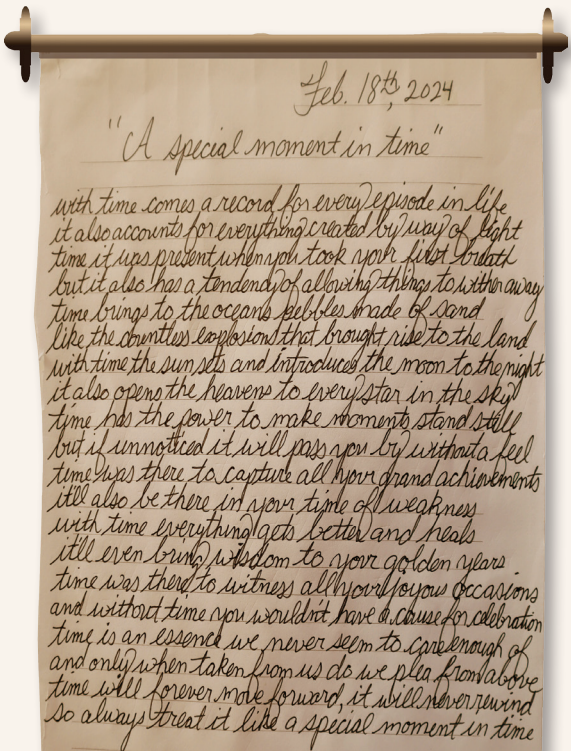 Feb. 18th, 2024
"A special moment in time"
with time comes a record for every episode in life
it also accounts for everything created by way of light
time it was present when you took your first breath
but it also has a tendency of allowing things to wither away
time brings to the oceans pebbles made of sand
like the countless explosions that brought rise to the land
with time the sun sets and introduces the moon to the night
it also opens the heavens to every star in the sky
time has the power to make moments stand still
but if unnoticed it will pass you by without a feel
time was there to capture all your grand achievements
it'll also be there in your time of weakness
with time everything gets better and heals
it'll even bring wisdom to your golden years
time was there to witness all your joyous occasions
and without time you wouldn't have a cause for celebration
time is an essence we never seem to care enough of
and only when taken from us do we plea from above
time will forever move forward, it will never rewind
so always treat it like a special moment in time